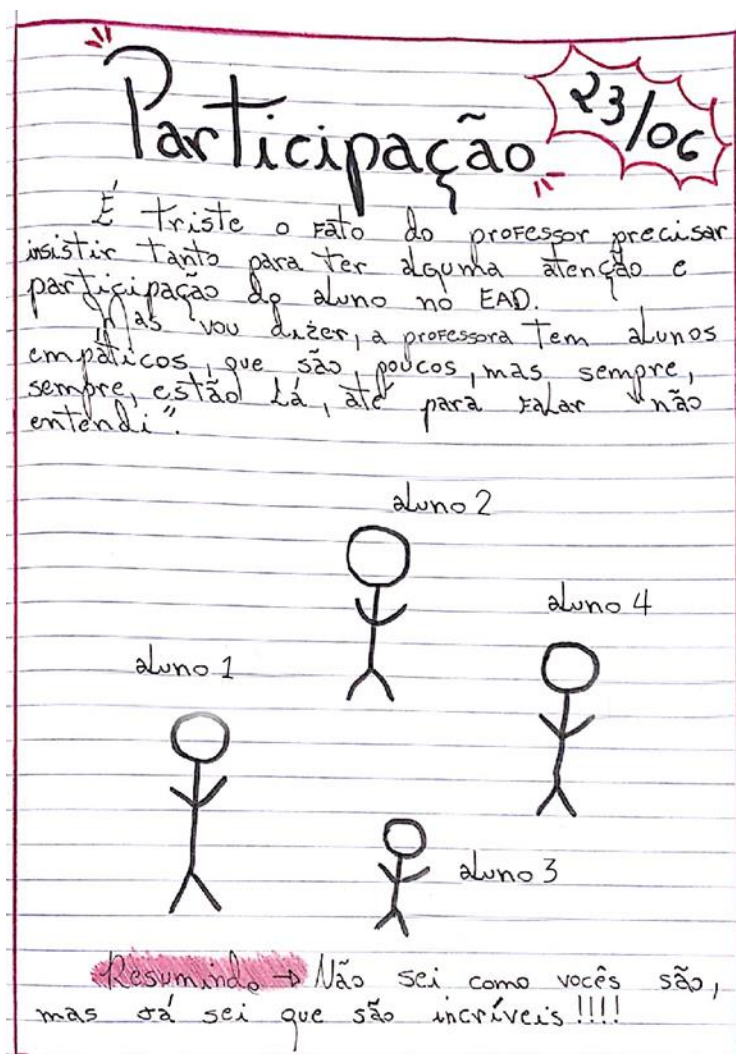 Participação
23/06
É triste o fato do professor precisar
insistir tanto para ter alguma atenção e
participação do aluno no EAD.
Mas vou dizer, a professora tem alunos
empáticos, que são poucos, mas sempre,
sempre, estão lá, até para falar "não
entendi".
aluno 2
aluno 4
aluno 1
aluno 3
Resumindo → Não sei como vocês são,
mas já sei que são incríveis!!!!